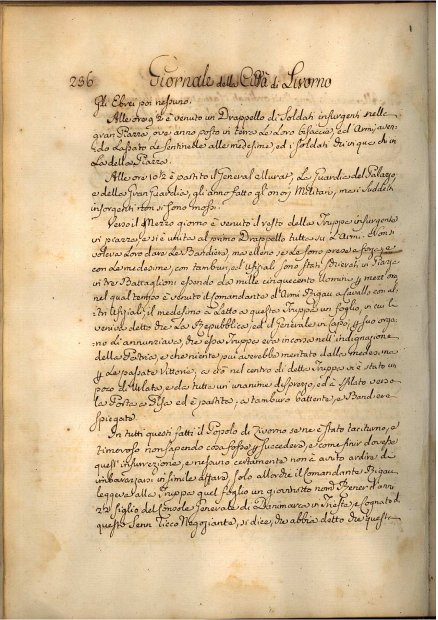 236 Giornale della Città di Livorno
Gli Ebrei poi nessuno.
Alle ore 9 1/2 è venuto un Drappello di Soldati insurgenti nella
gran Piazza, ove anno posto in terra le loro bisaccie, ed Armi aven-
do lasciato le sentinelle alle medesime, ed i soldati chi in qua chi in
là della Piazza.
Alle ore 10 1/2 è partito il General Murat, La Guardia del Palazzo,
e della Gran Guardia, gli anno fatto gli onori Militari, ma i suddetti
insorgenti non si sono mossi.
Verso il Mezzo giorno è venuto il resto della Truppa insurgente
in piazza, e si è unita al primo Drappello tutta su l'Armi. Non si
voleva loro dare le Bandiere, ma elleno se le sono prese a forza, e
con le medesime, con tamburi, ed Ufiziali sono stati schierati in Piazza
in tre Battaglioni essendo da mille cinquecento Uomini, per mezz'ora
nel qual tempo è venuto il Comandante d'Armi Rigau a Cavallo con al-
tri Ufiziali; il medesimo à letto a questa Truppa un foglio, in cui le
veniva detto che La Repubblica, ed il Generale in Capo, per suo orga-
no li annunziava, che essa Truppa era incorsa nell'indignazione
della Patria, e che niente più averebbe meritato dalla medesima
per le passate Vittorie, a che nel centro di detta Truppa vi è stato un
poco di Urlata, e da tutta un unanime disprezzo, ed è sfilata verso
la Porta a Pisa ed è partita, a tamburo battente, e Bandiere
spiegate.
In tutti questi fatti il Popolo di Livorno se ne è stato taciturno, e
timoroso non sapendo cosa fosse per succedere, e come finir dovesse
quell'insurrezione, e nessuno certamente non à avuto ardire di
imbarazzarsi in simile affare. Solo allorchè il Comandante Rigau
leggeva alla Truppa quel foglio un giovinotto nom.
22 figlio del Console Generale di Danimarca in Trieste, e cognato di
questo Negoziante, si dice, che abbia detto che questa